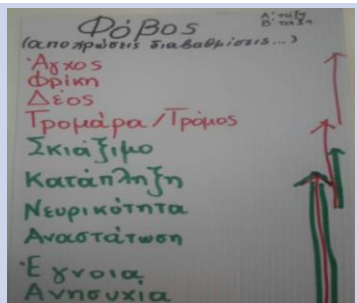 Φόβος
Α' τάξη
Β' τάξη
(αποχρώσεις διαβαθμίσεις...)
Άγχος
Φρίκη
Δέος
Τρομάρα/Τρόμος
Σκιάξιμο
Κατάπληξη
Νευρικότητα
Αναστάτωση
Έγνοια
Ανησυχία